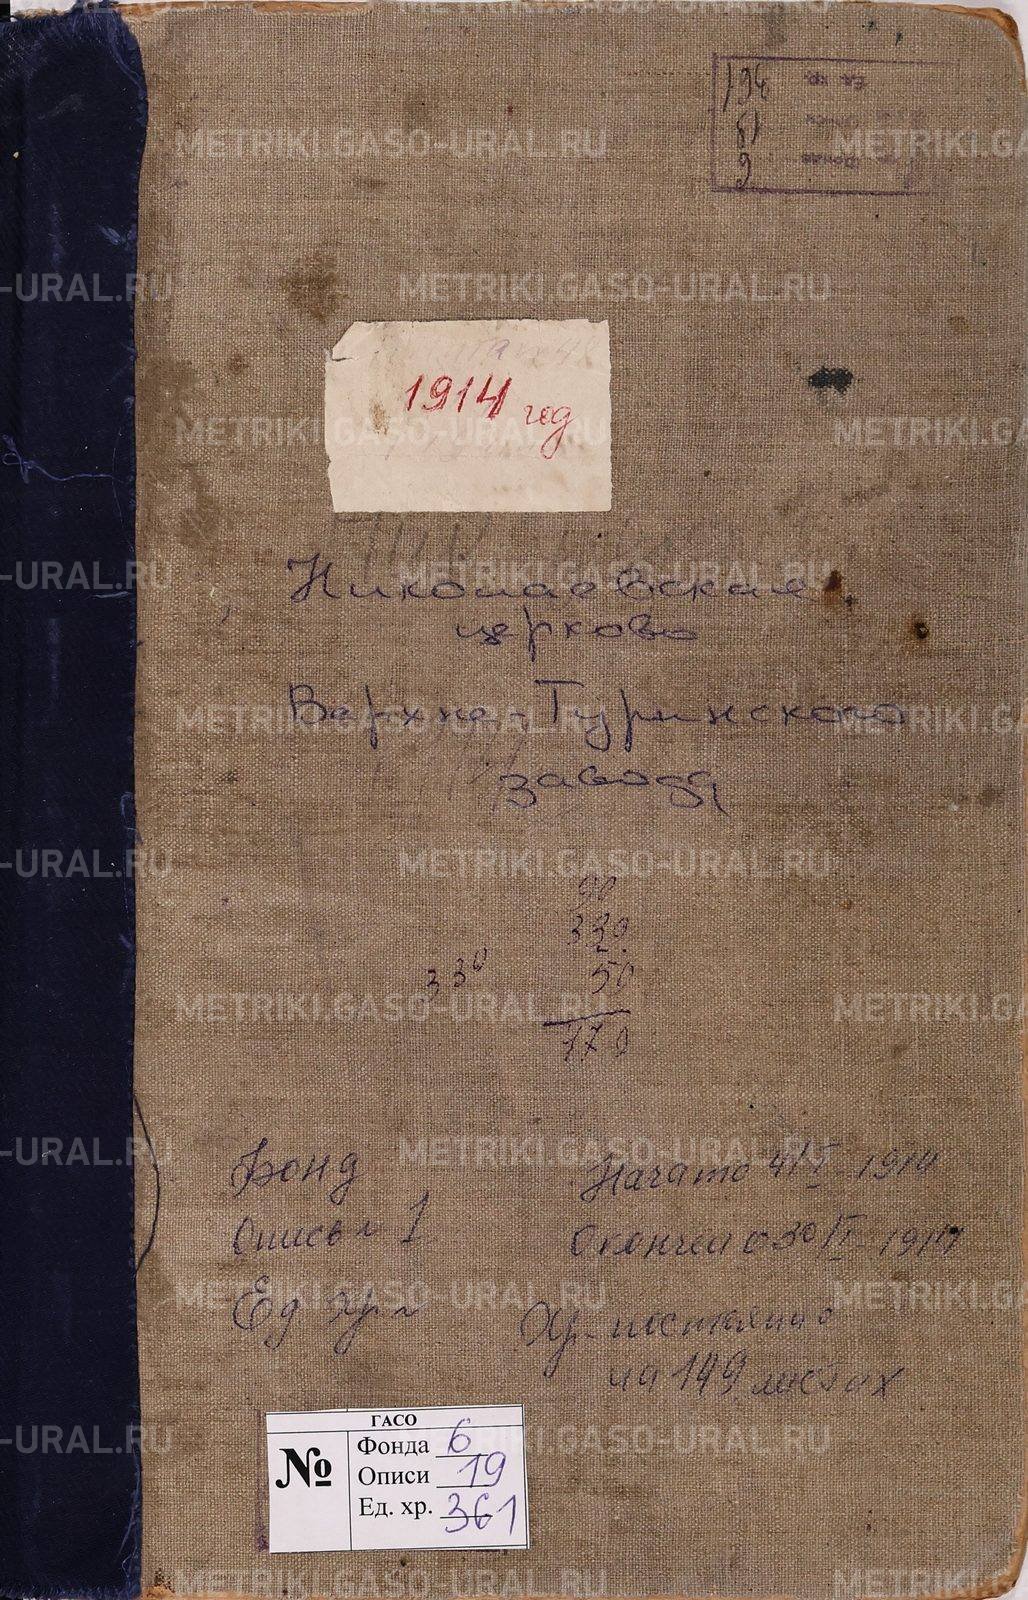 1914 год
Николаевская
церковь
Верхне-Туринского
завода
90
330
50
330
170
Фонд
Начато 4/I - 1914
Опись № 1
Окончено 30/VI - 1914
Ед хр №
Хр. постоянно
на 149 листах
ГАСО
№
Фонда 6
Описи 19
Ед. хр. 361
METRIKI.GASO-URAL.RU